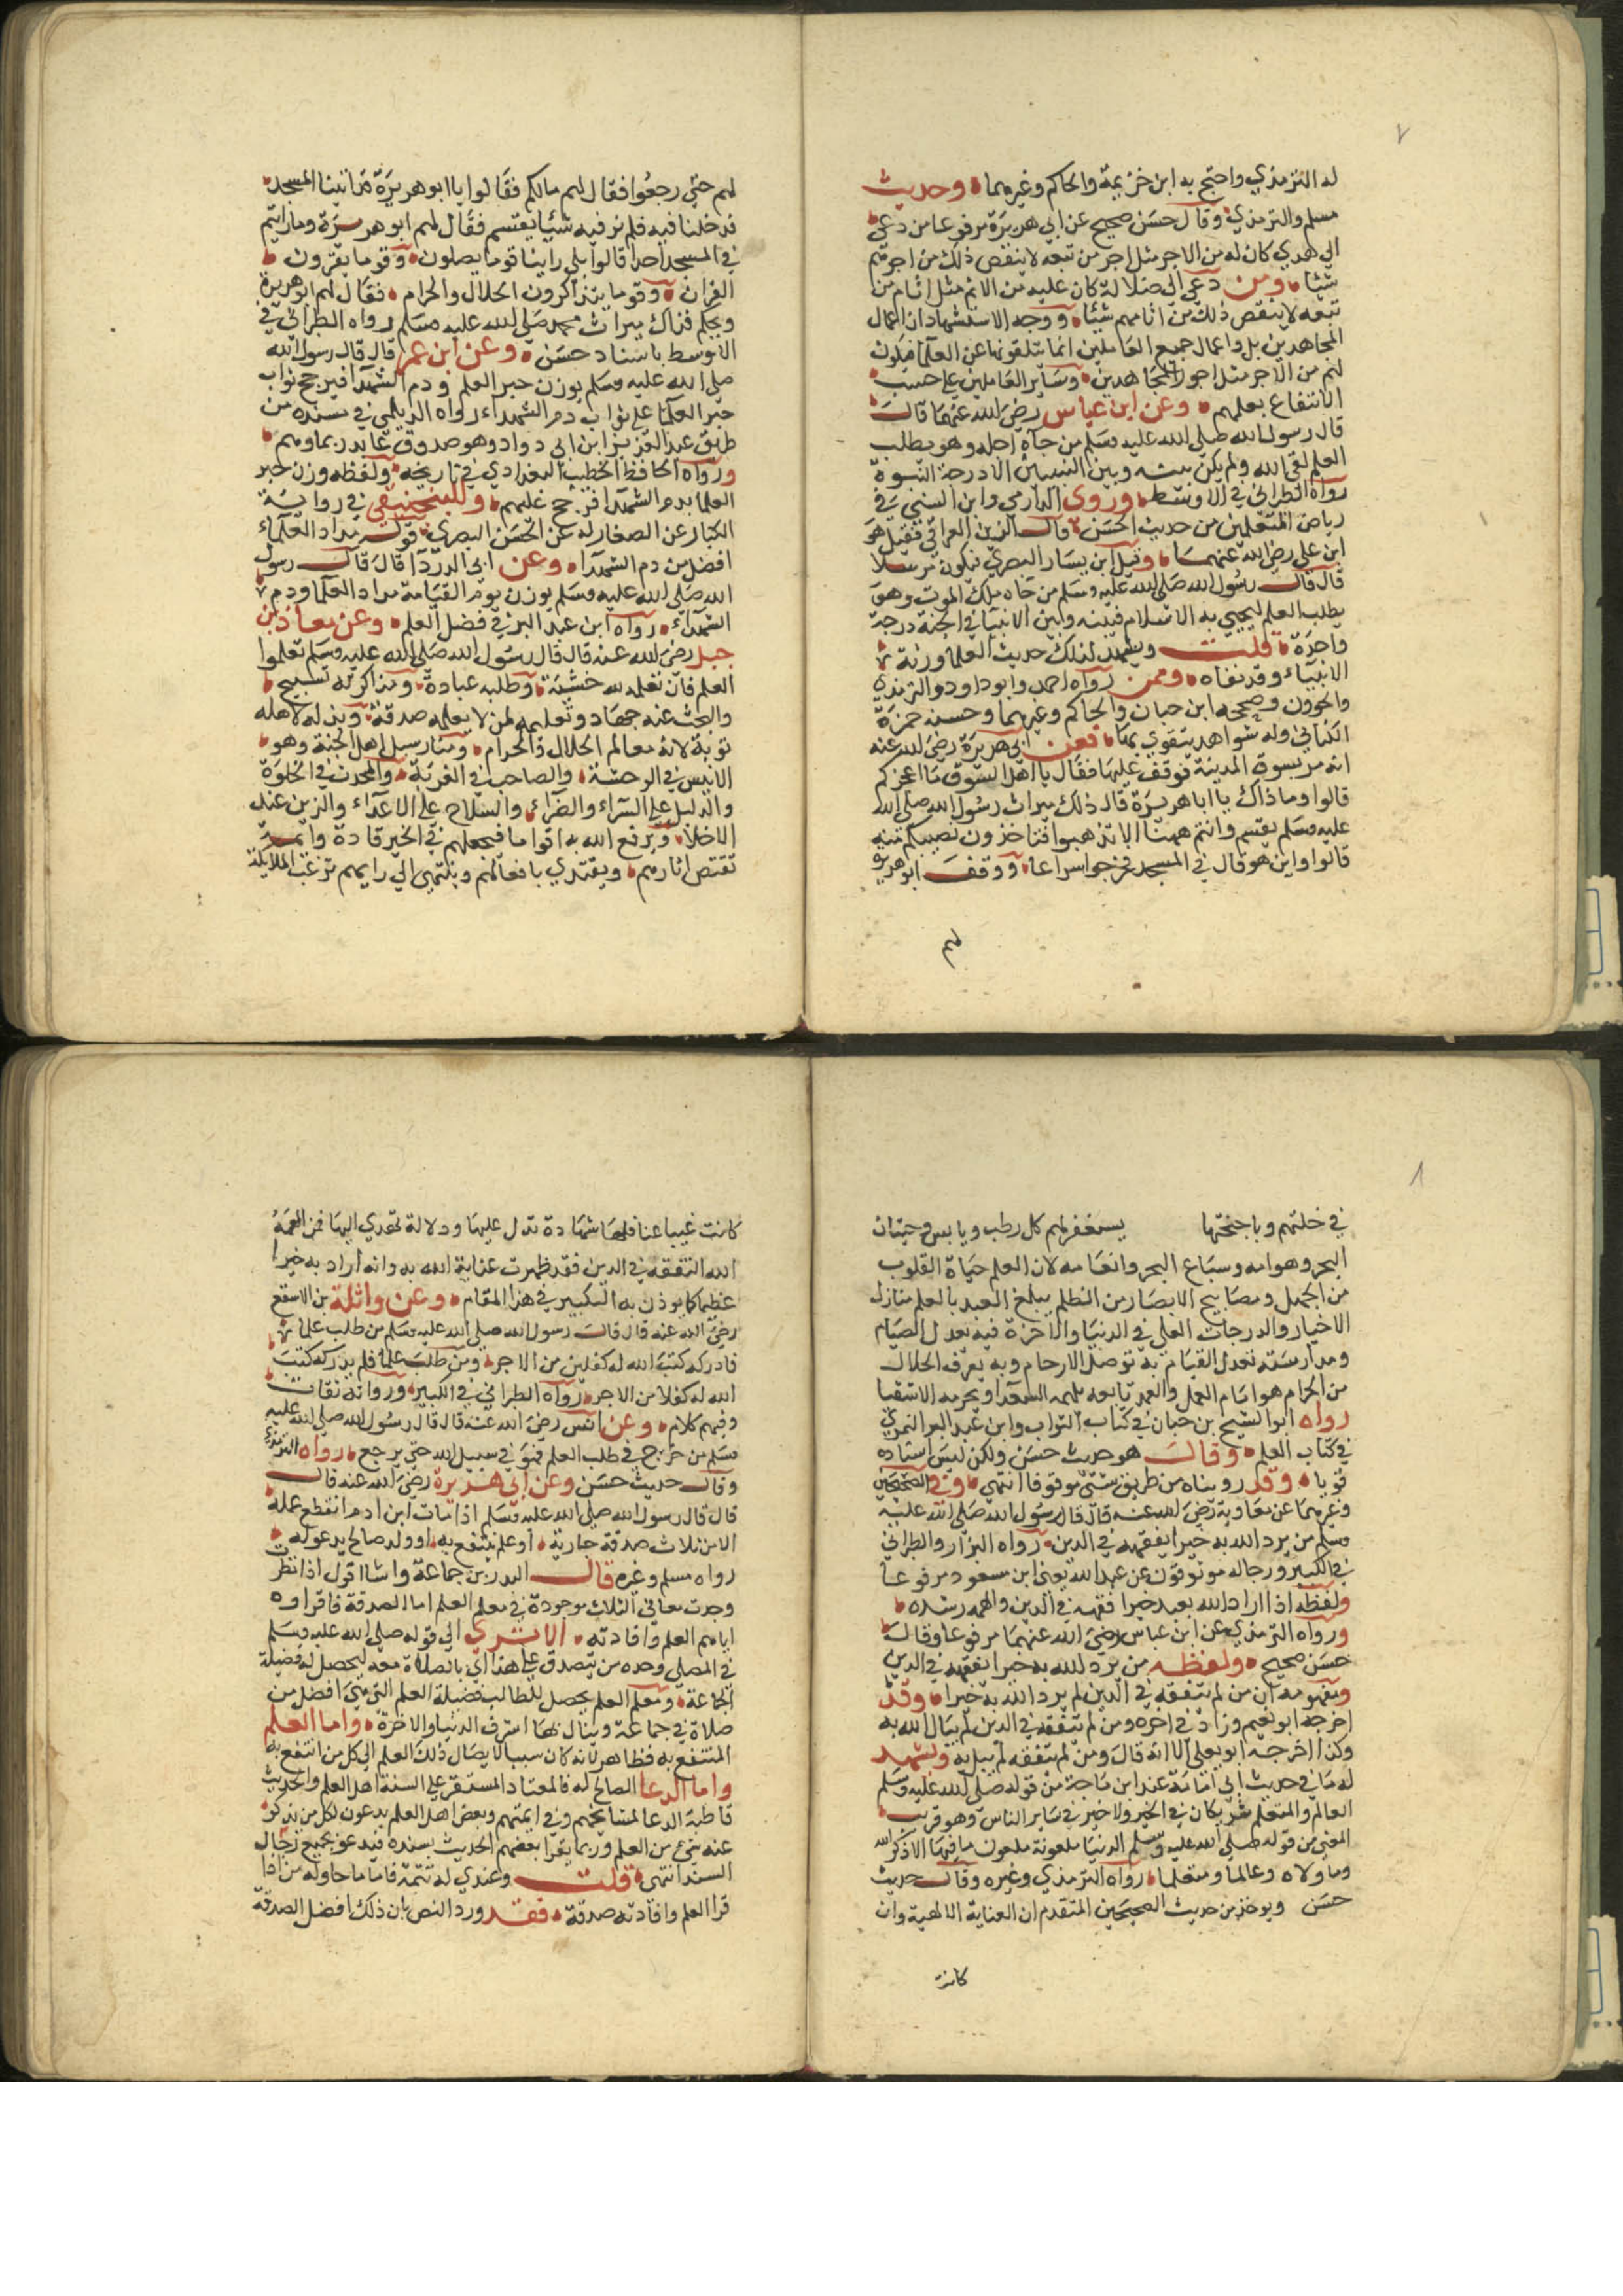 ٧
له الترمذي واحتج به ابن خزيمة والحاكم وغيرهما وحديث
مسلم والترمذي وقال حسن صحيح عن ابي هريرة مرفوعا من دعى
الي هدي كان له من الاجر مثل اجر من تبعه لا ينقص ذلك من اجرهم
شيئا ومن دعى الى ضلالة كان عليه من الاثم مثل اثام من
تبعه لا ينقص ذلك من اثامهم شيئا ووجه الاستشهاد ان اعمال
المجاهدين بل واعمال جميع العاملين انما يتلقونها عن العلما فيكون
لهم من الاجر مثل اجور المجاهدين وساير العاملين علي حسب
الانتفاع بعلمهم وعن ابن عباس رضي الله عنهما قال
قال رسول الله صلي الله عليه وسلم من جاه اجله وهو يطلب
العلم لقي الله ولم يكن بينه وبين النبيين الا درجة النبوة
رواه الطبراني في الاوسط وروي الدارمي وابن السني في
رياض المتعلمين من حديث الحسن قال الزين العراقي فقيل هو
ابن علي رضي الله عنهما وقيل ابن يسار البصري فيكون مرسلا
قال قال رسول الله صلي الله عليه وسلم من جاه ملك الموت وهو
يطلب العلم ليحيي به الاسلام فبينه وبين الانبيا في الجنة درجة
واحدة قلت ويشهد لذلك حديث العلما ورثة
الانبياء وقد نفاه وممن رواه احمد وابو داود والترمذي
واخرون وصححه ابن حبان والحاكم وغيرهما وحسنه حمزة
الكناني وله شواهد يتقوي بها فعن ابي هريرة رضي الله عنه
انه مر بسوق المدينة فوقف عليها فقال يا اهل السوق ما اعجزكم
قالوا وما ذاك يا ابا هريرة قال ذلك ميراث رسول الله صلي الله
عليه وسلم يقسم وانتم ههنا الا تذهبوا فتاخذون نصيبكم منه
قالوا واين هو قال في المسجد فخرجوا سراعا ووقف ابو هريرة
لهم
لهم حتي رجعوا فقال لهم مالكم فقالوا يا ابو هريرة قد اتينا المسجد
فدخلنا فيه فلم نر فيه شيئا يقسم فقال لهم ابو هريرة وما رايتم
في المسجد احدا قالوا بلي راينا قوما يصلون وقوما يقرون
القران وقوما يتذاكرون الحلال والحرام فقال لهم ابو هريرة
ويحكم فذاك ميراث محمد صلي الله عليه وسلم رواه الطبراني في
الاوسط باسناد حسن وعن ابن عمر قال قال رسول الله
صلي الله عليه وسلم يوزن حبر العلم ودم الشهدا فيرجح ثواب
حبر العلما علي ثواب دم الشهداء رواه الديلمي في مسنده من
طريق عبد العزيز ابن ابي دواد وهو صدوق عابد ربما وهم
ورواه الحافظ الخطيب البغدادي في تاريخه ولفظه وزن حبر
العلما بدم الشهدا فرجح عليهم وللمنجنيقي في رواية
الكبار عن الصغار له عن الحسن البصري قوله مداد العلماء
افضل من دم الشهدا وعن ابي الدردا قال قال رسول
الله صلي الله عليه وسلم يوزن يوم القيامة مداد العلما ودم
الشهداء رواه ابن عبد البر في فضل العلم وعن معاذ بن
جبل رضي الله عنه قال قال رسول الله صلي الله عليه وسلم تعلموا
العلم فان تعلمه لله خشية وطلبه عبادة ومذاكرته تسبيح
والبحث عنه جهاد وتعليمه لمن لا يعلمه صدقة وبذله لاهله
قربة لانه معالم الحلال والحرام ومنار سبل اهل الجنة وهو
الانيس في الوحشة والصاحب في الغربة والمحدث في الخلوة
والدليل علي السراء والضراء والسلاح علي الاعداء والزين عند
الاخلا ويرفع الله به اقواما فيجعلهم في الخير قادة وايمة
تقتص اثارهم ويقتدي بافعالهم وينتهي الي رايهم ترغب الملايكة
٨
في خلتهم وباجنحتها يستغفر لهم كل رطب ويابس وحيتان
البحر وهوامه وسباع البحر وانعامه لان العلم حياة القلوب
من الجهل ومصابيح الابصار من الظلم يبلغ العبد بالعلم منازل
الاخيار والدرجات العلي في الدنيا والاخرة فيه يعدل الصيام
ومدارسته تعدل القيام به توصل الارحام وبه يعرف الحلال
من الحرام هو امام العمل والعمل تابعه يلهمه السعدا ويحرمه الاشقيا
رواه ابو الشيخ بن حبان في كتاب الثواب وابن عبد البر النمري
في كتاب العلم وقال هو حديث حسن ولكن ليس اسناده
قويا وقد رويناه من طريق شتي موقوفا انتهي وفي الصحيحين
وغيرهما عن معاوية رضي الله عنه قال قال رسول الله صلي الله عليه
وسلم من يرد الله به خيرا يفقهه في الدين رواه البزار والطبراني
في الكبير ورجاله موثوقون عن عبد الله يعني ابن مسعود مرفوعا
ولفظه اذا اراد الله بعبد خيرا فقهه في الدين والهمه رشده
ورواه الترمذي عن ابن عباس رضي الله عنهما مرفوعا وقال
حسن صحيح ولفظه من يرد الله به خيرا يفقهه في الدين
ومفهومه ان من لم يتفقه في الدين لم يرد الله به خيرا وقد
اخرجه ابو نعيم وزاد في اخره ومن لم يتفقه في الدين لم يبال الله به
وكذا اخرجه ابو يعلي الا انه قال ومن لم يتفقه لم يبل به ويشهد
له ما في حديث ابي امامة عند ابن ماجة من قوله صلي الله عليه وسلم
العالم والمتعلم شريكان في الخير ولا خير في ساير الناس وهو قريب
المعني من قوله صلي الله عليه وسلم الدنيا ملعونة ملعون ما فيها الا ذكر الله
وما ولاه وعالما ومتعلما رواه الترمذي وغيره وقال حديث
حسن ويوخذ من حديث الصحيحين المتقدم ان العناية الالهية وان
كانت
كانت غيبا عنا فلها شهادة تدل عليها ودلالة تهدي اليها فمن الهمه
الله التفقه في الدين فقد ظهرت عناية الله به وانه اراد به خيرا
عظيما كما يوذن به التكبير في هذا المقام وعن واثلة بن الاسقع
رضي الله عنه قال قال رسول الله صلي الله عليه وسلم من طلب علما
فادركه كتب الله له كفلين من الاجر ومن طلب علما فلم يدركه كتب
الله له كفلا من الاجر رواه الطبراني في الكبير ورواته ثقات
وفيهم كلام وعن انس رضي الله عنه قال قال رسول الله صلي الله عليه
وسلم من خرج في طلب العلم فهو في سبيل الله حتي يرجع رواه الترمذي
وقال حديث حسن وعن ابي هريرة رضي الله عنه قال
قال قال رسول الله صلي الله عليه وسلم اذا مات ابن ادم انقطع عمله
الا من ثلاث صدقة جارية او علم ينتفع به او ولد صالح يدعو له
رواه مسلم وغيره قال البدر بن جماعة وانا اقول اذا نظرت
وجدت معاني الثلاث موجودة في معلم العلم اما الصدقة فاقراوه
اياهم العلم وافادته الا تري الي قوله صلي الله عليه وسلم
في المصلي وحده من يتصدق علي هذا اي بالصلاة معه ليحصل له فضيلة
الجماعة ومعلم العلم يحصل للطالب فضيلة العلم التي هي افضل من
صلاة في جماعة وينال بها اشرف الدنيا والاخرة واما العلم
المنتفع به فظاهر لانه كان سببا لايصال ذلك العلم الي كل من انتفع به
واما الدعا الصالح له فالمعتاد المستقر علي السنة اهل العلم والحديث
قاطبة الدعا لمشايخهم وفي ايمتهم وبعض اهل العلم يدعون لكل من يذكر
عنه شيء من العلم وربما يقرا بعضهم الحديث بسنده فيدعو بجميع رجال
السند انتهي قلت وعندي له تتمة فاما ما حاوله من اذا
قرا العلم وافادته صدقة فقد ورد النص بان ذلك افضل الصدقة